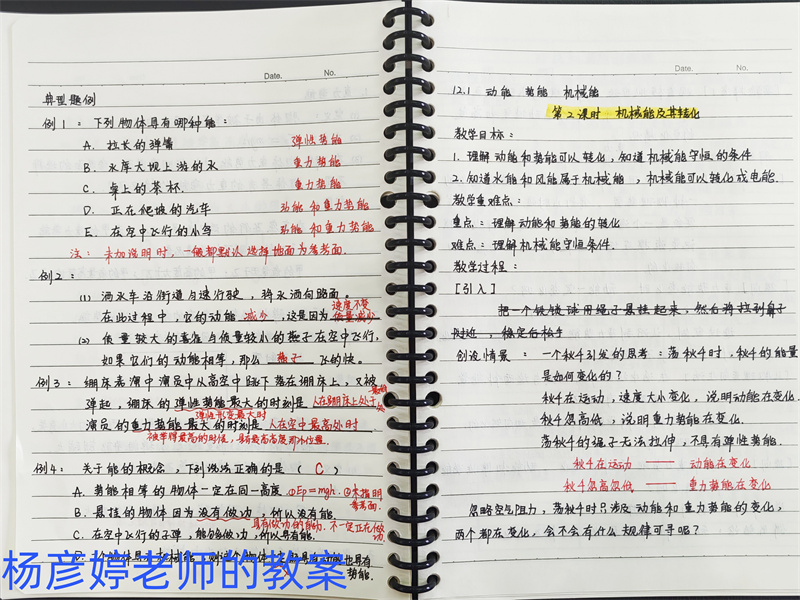 Date.    No.
典型题例
例1：下列物体具有哪种能：
A. 拉长的弹簧    弹性势能
B. 水库大坝上游的水    重力势能
C. 桌上的茶杯    重力势能
D. 正在爬坡的汽车    动能和重力势能
E. 在空中飞行的小鸟    动能和重力势能
注：未加说明时，一般都默认选择地面为参考面.
例2：
(1) 洒水车沿街道匀速行驶，将水洒向路面。
速度不变
在此过程中，它的动能 减小，这是因为 质量减少
(2) 质量较大的喜鹊与质量较小的燕子在空中飞行，
如果它们的动能相等，那么 燕子 飞的快。
例3：绷床表演中演员从高空中跃下落在绷床上，又被
弹起，绷床的弹性势能最大的时刻是 人在绷床上处于
弹性形变最大时
演员的重力势能最大的时刻是 人在空中最高处时
例4：关于能的概念，下列说法正确的是（ C ）
A. 势能相等的物体一定在同一高度 ①Ep=mgh. ②未指明
参考面.
B. 悬挂的物体因为没有做功，所以没有能.
具有做功的能力，不一定正在做
功
C. 在空中飞行的子弹，能够做功，所以具有能.
势能.
杨彦婷老师的教案
Date.    No.
12.1 动能 势能 机械能
第2课时 机械能及其转化
教学目标：
1. 理解动能和势能可以转化，知道机械能守恒的条件
2. 知道水能和风能属于机械能，机械能可以转化成电能.
教学重难点：
重点：理解动能和势能的转化
难点：理解机械能守恒条件.
教学过程：
[引入]
把一个铁锁球用绳子悬挂起来，然后将拉到鼻子
附近，稳定后松手
创设情景：一个秋千引发的思考：荡秋千时，秋千的能量
是如何变化的？
秋千在运动，速度大小变化，说明动能在变化.
秋千忽高忽低，说明重力势能在变化.
荡秋千的绳子无法拉伸，不具有弹性势能.
秋千在运动 —— 动能在变化
秋千忽高忽低 —— 重力势能在变化
忽略空气阻力，荡秋千时只涉及动能和重力势能的变化，
两个都在变化，会不会有什么规律可寻呢？